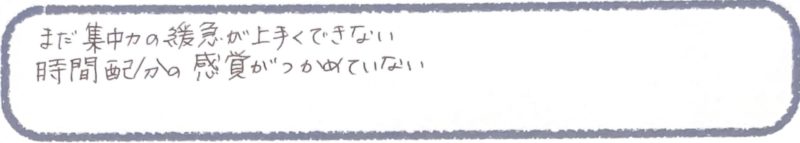 まだ集中力の緩急が上手くできない
時間配分の感覚がつかめていない